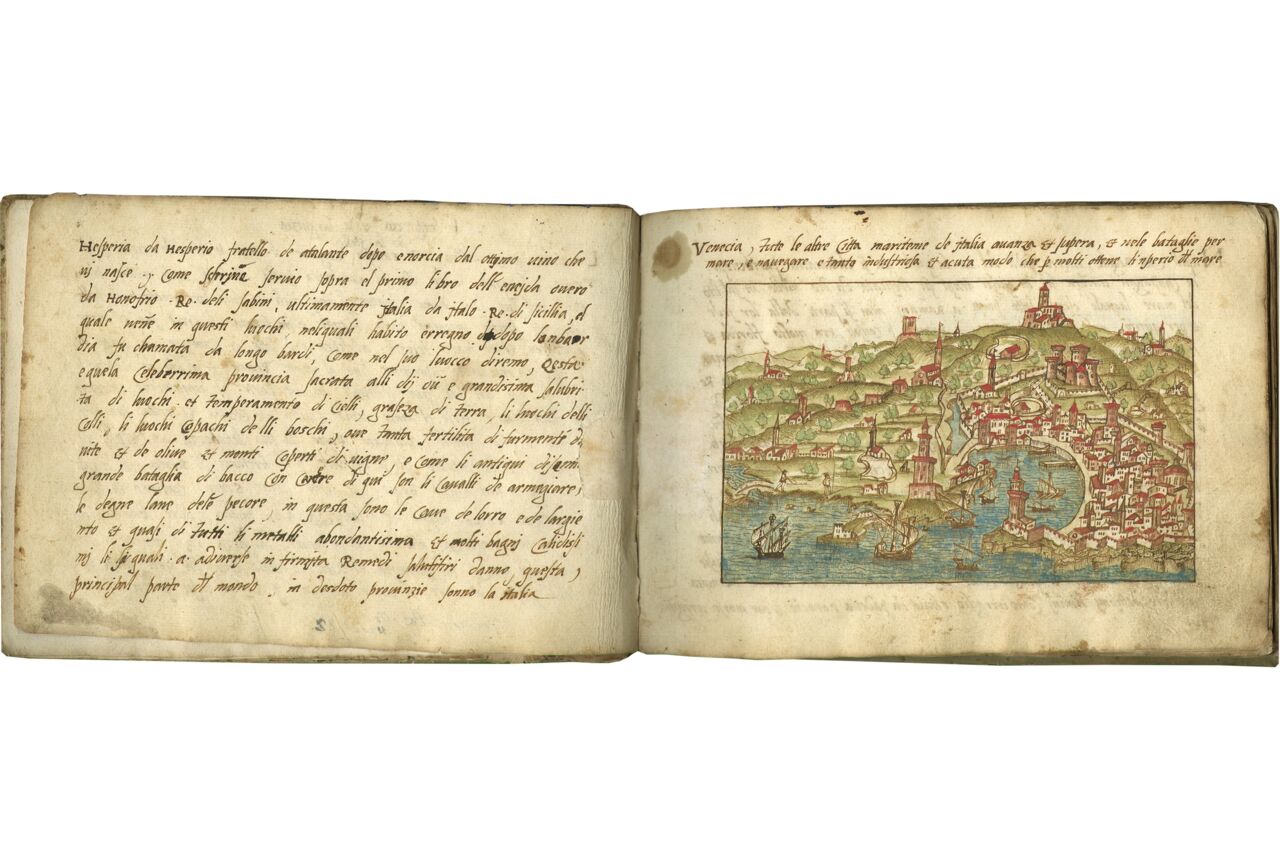 Hesperia da Hesperio fratello de atalante dopo enorcia dal ottimo uino che
ui nasce, Come scriue seruio sopra el primo libro dell eneida ouero
da Honofrio Re deli sabini, ultimamente italia da italo Re di sicilia, el
quale uene in questi luochi, neliquali habito e rregno, dopo lonbar
dia fu chamata da longo bardi, Come nel suo luocco diremo, Qesta
equela Celeberrima prouincia sacrata alli dij oue e grandisima salubri
ta di luochi et temperamento di Cielli, graseza di terra, li luochi delli
Colli, li luochi Copachi delli boschi, oue tanta fertilita di furmento
uite et de oliue et monti Coperti di uigne, e Come li antiqui
grande bataglia di bacco Con di qui son li Caualli de armegiare,
le degne lane dele pecore, in questa sono le Caue de lorro e de largie
nto et quasi di tutti li metalli abondantisima et molti bagnj Calidisi
mj li quali a adiuerse in firmita Remedi salutifiri danno questa,
principal parte dl mondo, in desdoto prouinzie sonno la italia
Venecia, tute le altre Citta maritene de italia auanza et supera, et nele bataglie per
mare, e nauegare e tanto industriosa et acuta modo che p molti ottene linperio dl mare